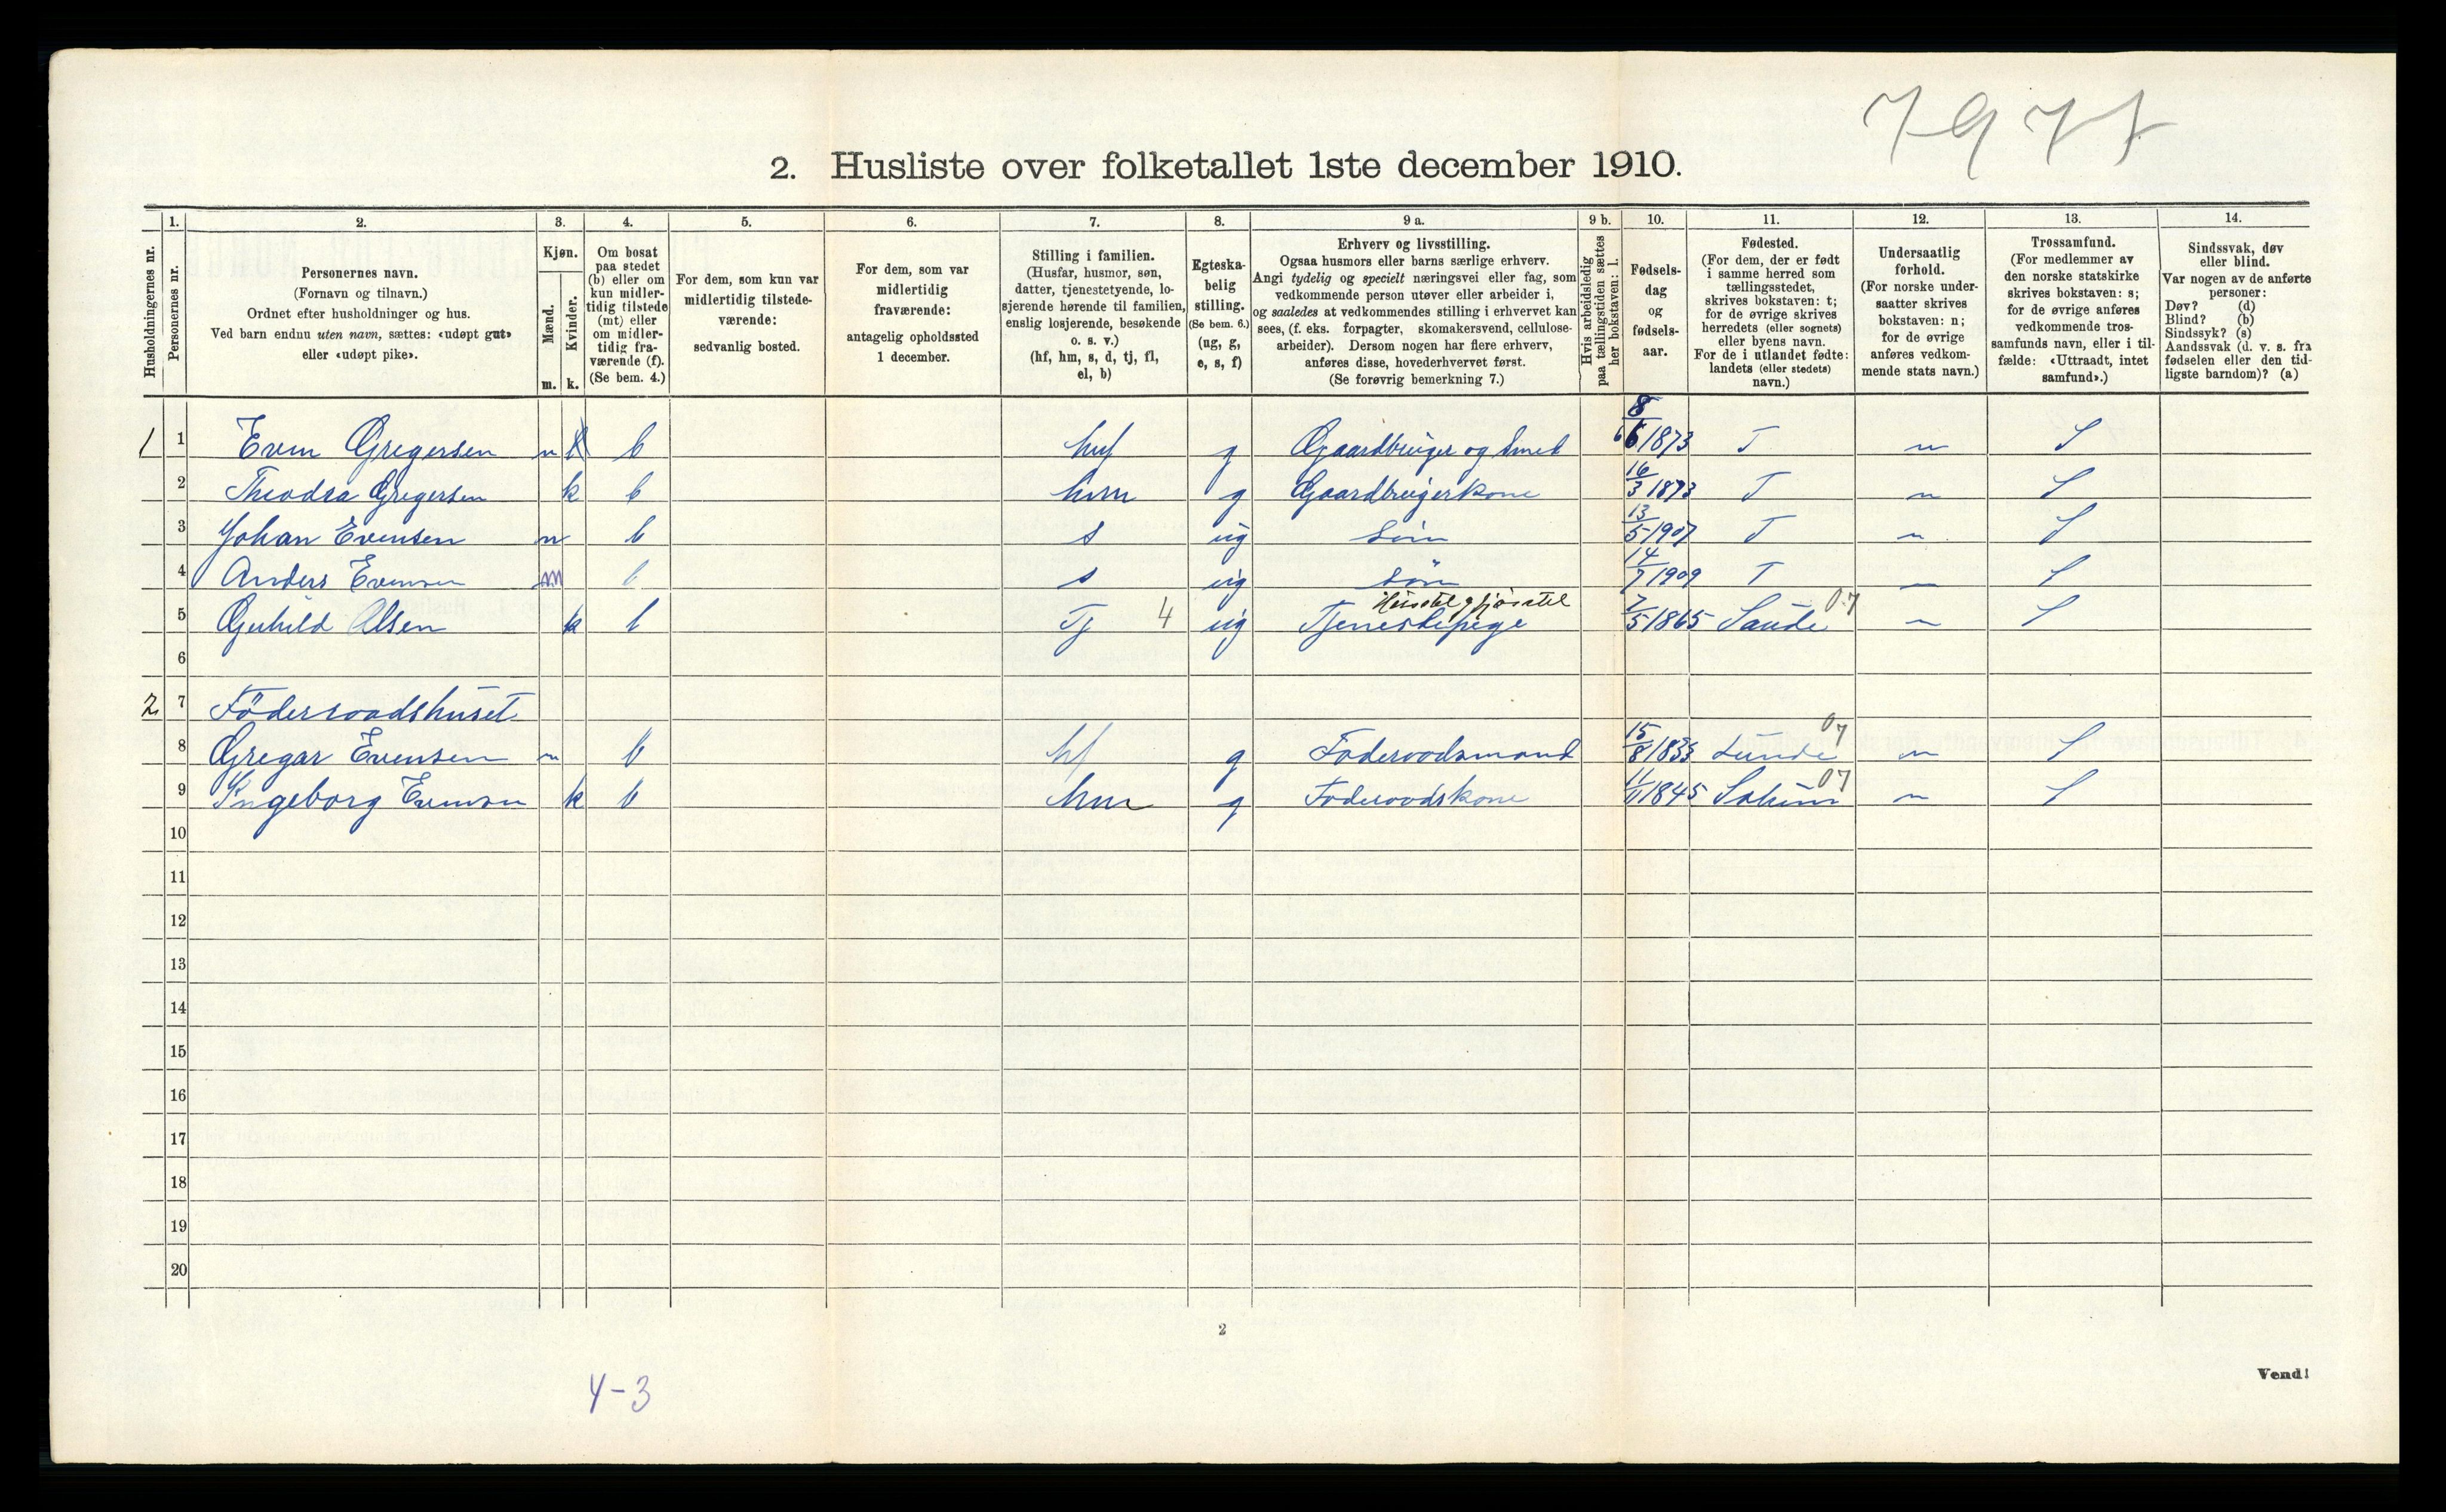 7977
2. Husliste over folketallet 1ste december 1910.
Husholdningernes nr.
1.
Personernes nr.
2.
Personernes navn.
(Fornavn og tilnavn.)
Ordnet efter husholdninger og hus.
Ved barn endnu uten navn, sættes: «udøpt gut»
eller «udøpt pike».
3.
Kjøn.
Mænd.
Kvinder.
m. k.
4.
Om bosat
paa stedet
(b) eller om
kun midler-
tidig tilstede
(mt) eller
om midler-
tidig fra-
værende (f).
(Se bem. 4.)
5.
For dem, som kun var
midlertidig tilstede-
værende:
sedvanlig bosted.
6.
For dem, som var
midlertidig
fraværende:
antagelig opholdssted
1 december.
7.
Stilling i familien.
(Husfar, husmor, søn,
datter, tjenestetyende, lo-
sjerende hørende til familien,
enslig losjerende, besøkende
o. s. v.)
(hf, hm, s, d, tj, fl,
el, b)
8.
Egteska-
belig
stilling.
(Se bem. 6.)
(ug, g,
e, s, f)
9 a.
Erhverv og livsstilling.
Ogsaa husmors eller barns særlige erhverv.
Angi tydelig og specielt næringsvei eller fag, som
vedkommende person utøver eller arbeider i,
og saaledes at vedkommendes stilling i erhvervet kan
sees, (f. eks. forpagter, skomakersvend, cellulose-
arbeider). Dersom nogen har flere erhverv,
anføres disse, hovederhvervet først.
(Se forøvrig bemerkning 7.)
9 b.
Hvis arbeidsledig
paa tællingstiden sættes
her bokstaven: l.
10.
Fødsels-
dag
og
fødsels-
aar.
11.
Fødested.
(For dem, der er født
i samme herred som
tællingsstedet,
skrives bokstaven: t;
for de øvrige skrives
herredets (eller sognets)
eller byens navn.
For de i utlandet fødte:
landets (eller stedets)
navn.)
12.
Undersaatlig
forhold.
(For norske under-
saatter skrives
bokstaven: n;
for de øvrige
anføres vedkom-
mende stats navn.)
13.
Trossamfund.
(For medlemmer av
den norske statskirke
skrives bokstaven: s;
for de øvrige anføres
vedkommende tros-
samfunds navn, eller i til-
fælde: «Uttraadt, intet
samfund».)
14.
Sindssvak, døv
eller blind.
Var nogen av de anførte
personer:
Døv? (d)
Blind? (b)
Sindssyk? (s)
Aandssvak (d. v. s. fra
fødselen eller den tid-
ligste barndom)? (a)
1 1 Even Gregersen m b huf g Gaardbruger og Smed 8/6 1873 T n S
2 Theodra Gregersen k b hum g Gaardbrugerkone 16/3 1873 T n S
3 Johan Evensen m b s ug Søn 13/5 1907 T n S
4 Anders Evensen m b s ug Søn 14/7 1909 T n S
Husstel og fjøsstel
5 Gunhild Olsen k b Tj 4 ug Tjenestepige 7/5 1865 Saude 07 n S
6
2 7 Föderaadshuset
8 Gregar Evensen m b hf g Föderaadsmand 15/8 1835 Lunde 07 n S
9 Ingeborg Evensen k b hm g Föderaadskone 11/11 1845 Solum 07 n S
10
11
12
13
14
15
16
17
18
19
20
2
Vend!
4-3